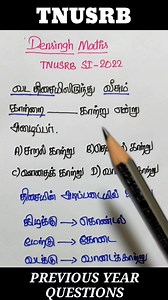 TNUSRB
Densingh Maths
TNUSRB SI-2022
வட திசையிலிருந்து வீசும்
காற்றை ______ காற்று என்று
அழைப்பர்.
A) சாரல் காற்று B) காற்று
C) வாடைக் காற்று D) காற்று
திசையின் அடிப்படையில்
கிழக்கு → கொண்டல்
மேற்கு → கோடை
வடக்கு → வாடைக்காற்று
PREVIOUS YEAR
QUESTIONS